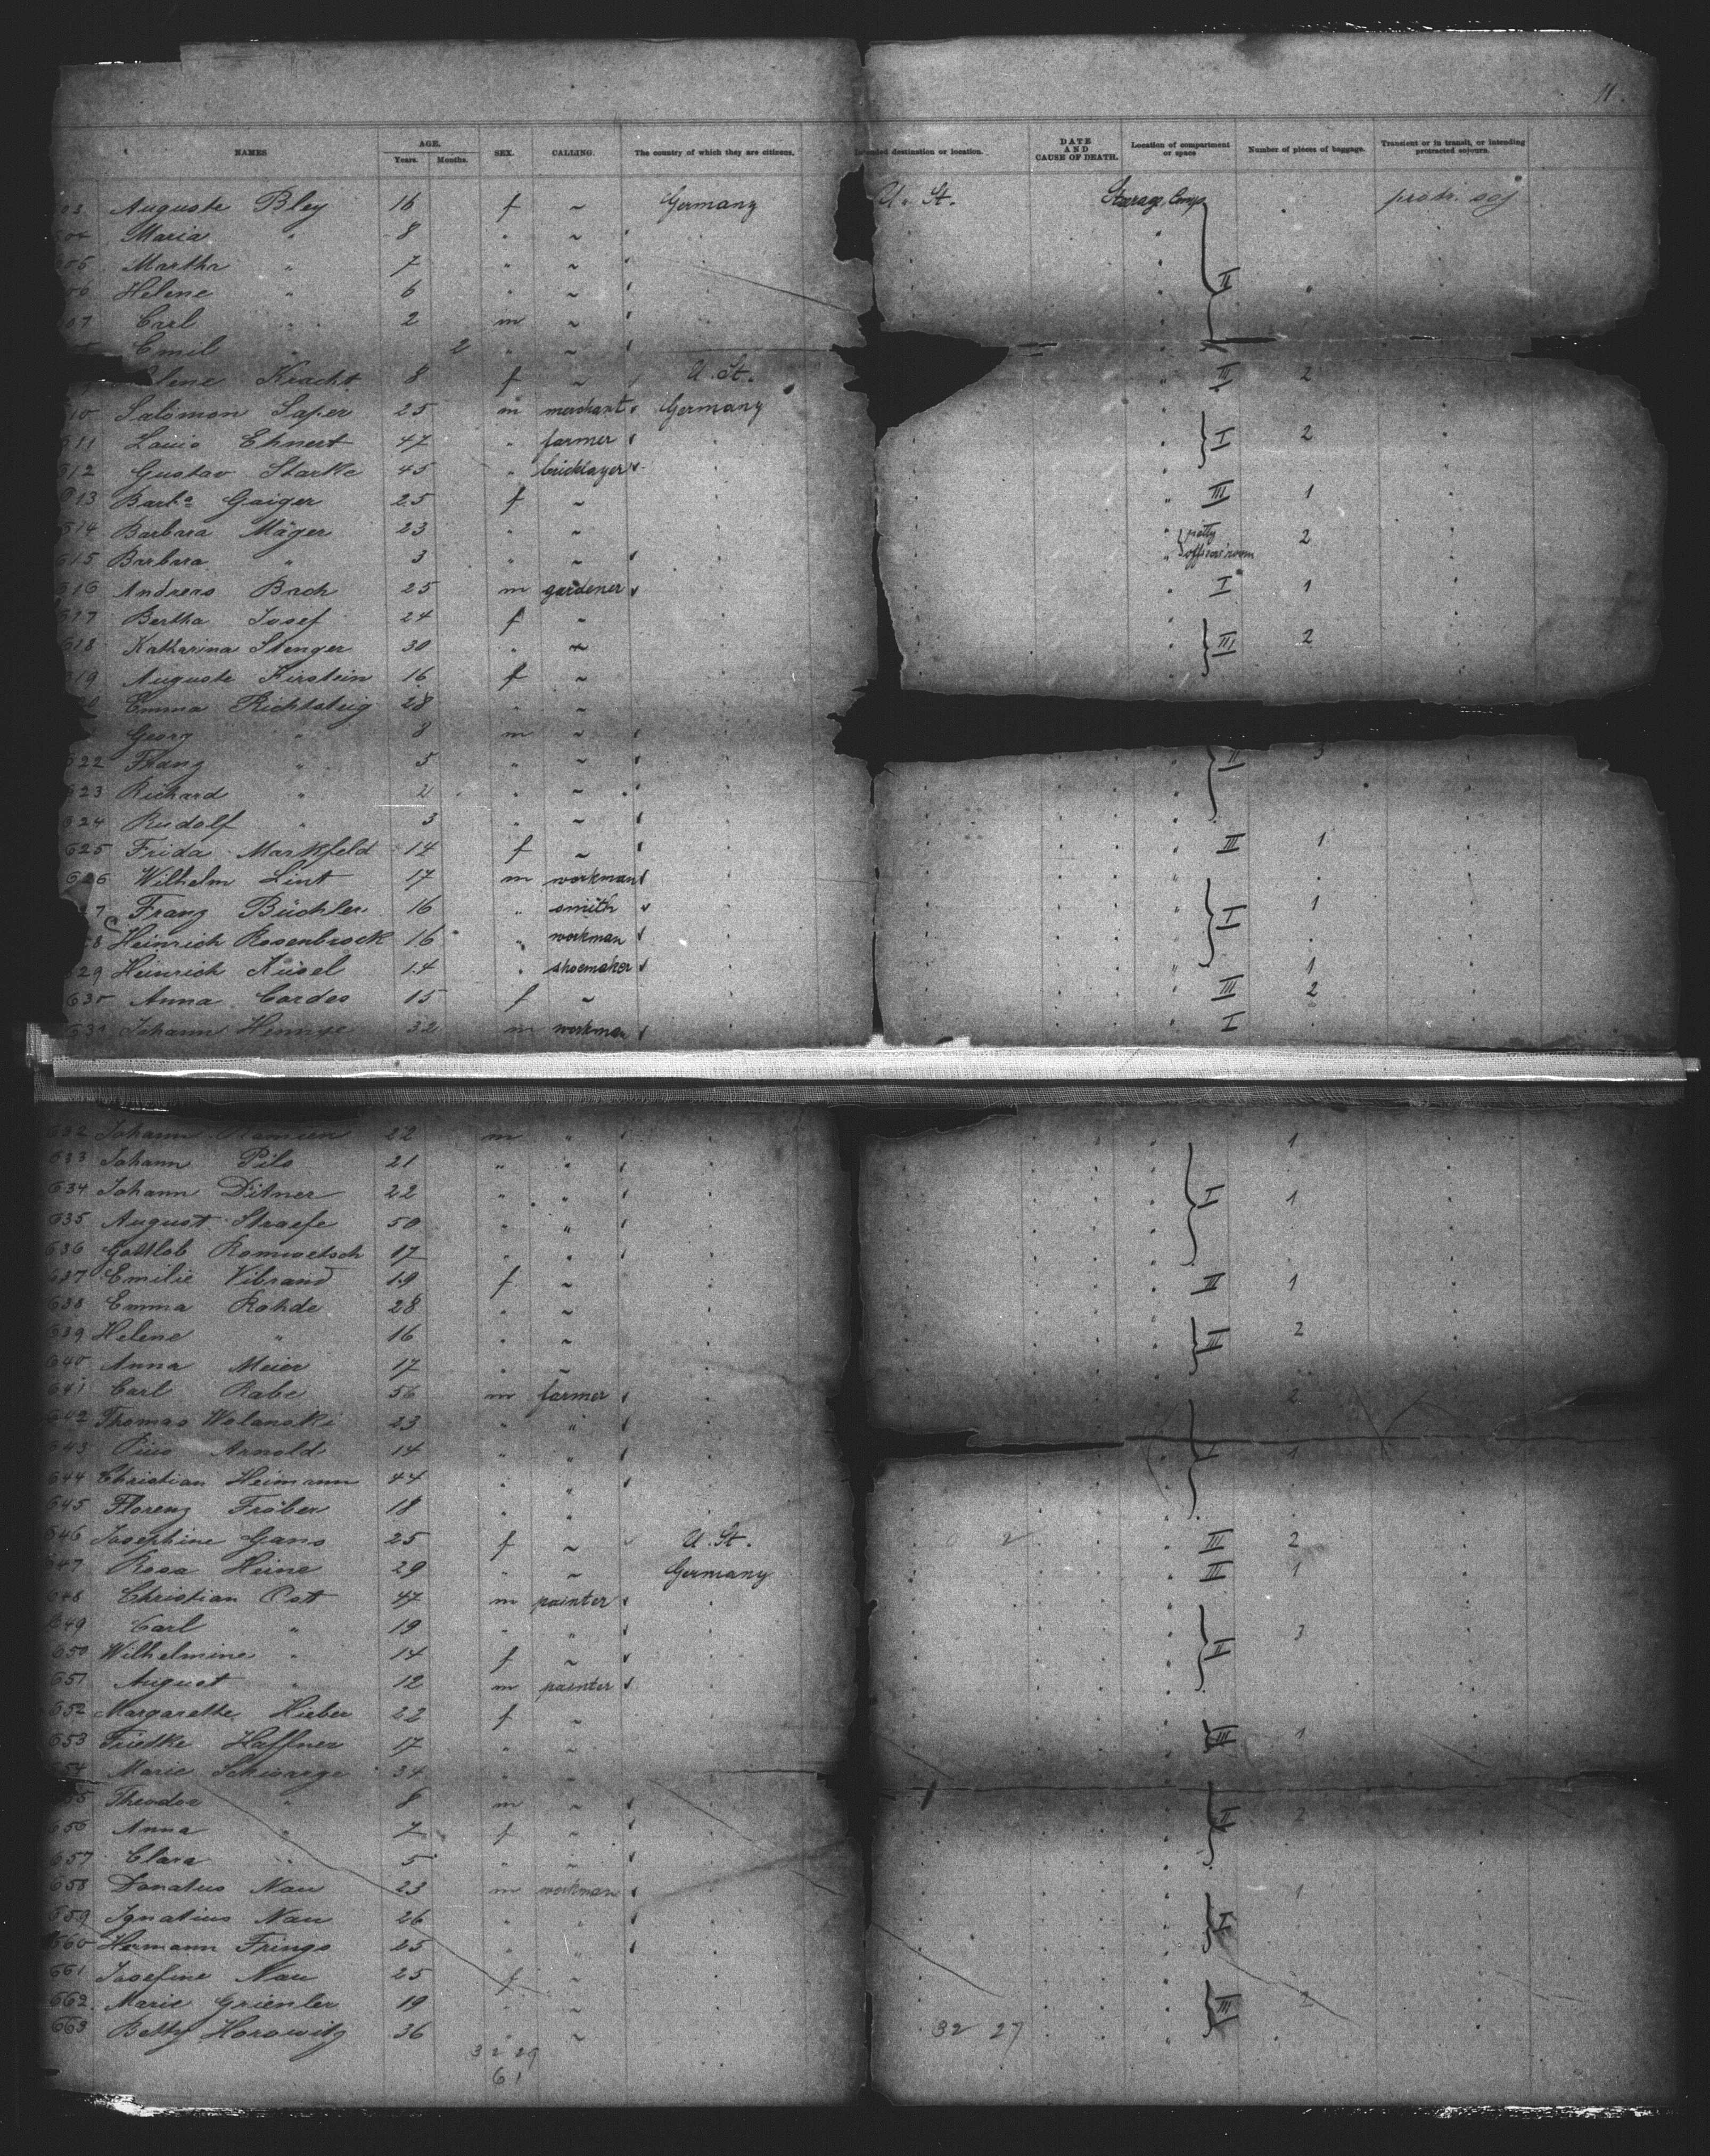 11.
NAMES AGE. Years. Months. SEX. CALLING. The country of which they are citizens. destination or location. DATE AND CAUSE OF DEATH. Location of compartment or space Number of pieces of baggage. Transient or in transit, or intending protracted sojourn.
03 Auguste Bley 16 f ~ Germany U. St. Steerage, Comp protr. soj
04 Maria " 8 " ~
05 Martha " 7 " ~
06 Helene " 6 " ~ II
07 Carl " 2 m ~
Emil " 2 " ~
lene Kracht 8 f ~ U. St. " III 2
10 Salomon Saper 25 m merchant Germany
611 Louis Ehnert 47 " farmer I 2
612 Gustav Starke 45 " bricklayer
613 Barba Gaiger 25 f ~ " III 1
614 Barbara Mäger 23 " ~ " petty 2
615 Barbara " 3 " ~ " officers' room
616 Andreas Bach 25 m gardener I 1
617 Bertha Josef 24 f ~
618 Katharina Stenger 30 " ~ III 2
619 Auguste Kirstein 16 f ~
Emma Richtsteig 28 " ~
Georg " 8 m ~
622 Franz " 5 " ~ II 3
623 Richard " 2 " ~
624 Rudolf " 3 " ~
625 Frida Markfeld 14 f ~ III 1
626 Wilhelm Lint 17 m workman
27 Franz Büchler 16 " smith I 1
28 Heinrich Rosenbrock 16 " workman
629 Heinrich Küsel 14 " shoemaker 1
630 Anna Cordes 15 f ~ III 2
631 Johann Hennye 32 m workman I
632 Johann 22 m " 1
633 Johann Pils 21 " "
634 Johann Ditner 22 " " I 1
635 August Straefe 50 " "
636 Gottlob Romwetsch 17 " "
637 Emilie Vibrand 19 f ~ II 1
638 Emma Rohde 28 " ~
639 Helene " 16 " ~ III 2
640 Anna Meier 17 " ~
641 Carl Rabe 56 m farmer 2
642 Thomas Wolanski 23 " "
643 Pius Arnold 14 " " I 1
644 Christian Heimann 44 " "
645 Florenz Fröber 18 " "
646 Josephine Gans 25 f ~ U. St. 0 2 III 2
647 Rosa Heine 29 " ~ Germany III 1
648 Christian Ott 47 m painter
649 Carl " 19 " " II 3
650 Wilhelmine " 14 f ~
651 August " 12 m painter
652 Margarethe Hieber 22 f ~
653 Friedke Haffner 17 " ~ III 1
654 Marie Schwarze 34 " ~
655 Theodor " 8 m ~ II 2
656 Anna " 7 f ~
657 Clara " 5 " ~
658 Donatus Nau 23 m workman 1
659 Ignatius Nau 26 " " I
660 Hermann Frings 25 " "
661 Josefine Nau 25 f ~
662 Marie Grienler 19 " ~ III 2
663 Betty Horowitz 36 " ~ 32 27
32 29
61